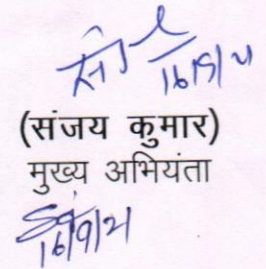 16/9/21
(संजय कुमार)
मुख्य अभियंता
16/9/21